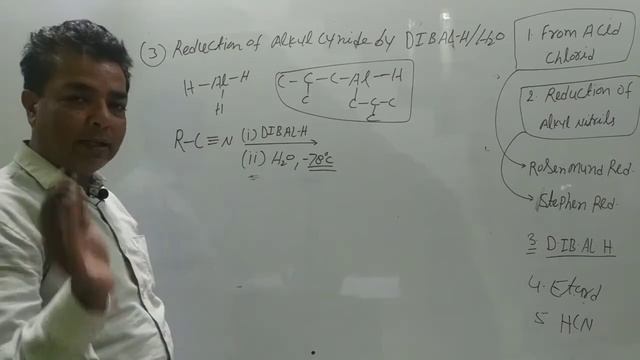 (3) Reduction of Alkyl Cynide by DIBAL-H/H2O
H-Al-H
H
C-C-C-Al-H
C C-C-C
C
R-C≡N (i) DIBAL-H
(ii) H2O, -78°C
1. From Acid
Chlorid
2. Reduction of
Alkyl Nitrils
Rosenmund Red.
Stephen Red.
3. D.I.B.AL H
4. Etard
5 HCN